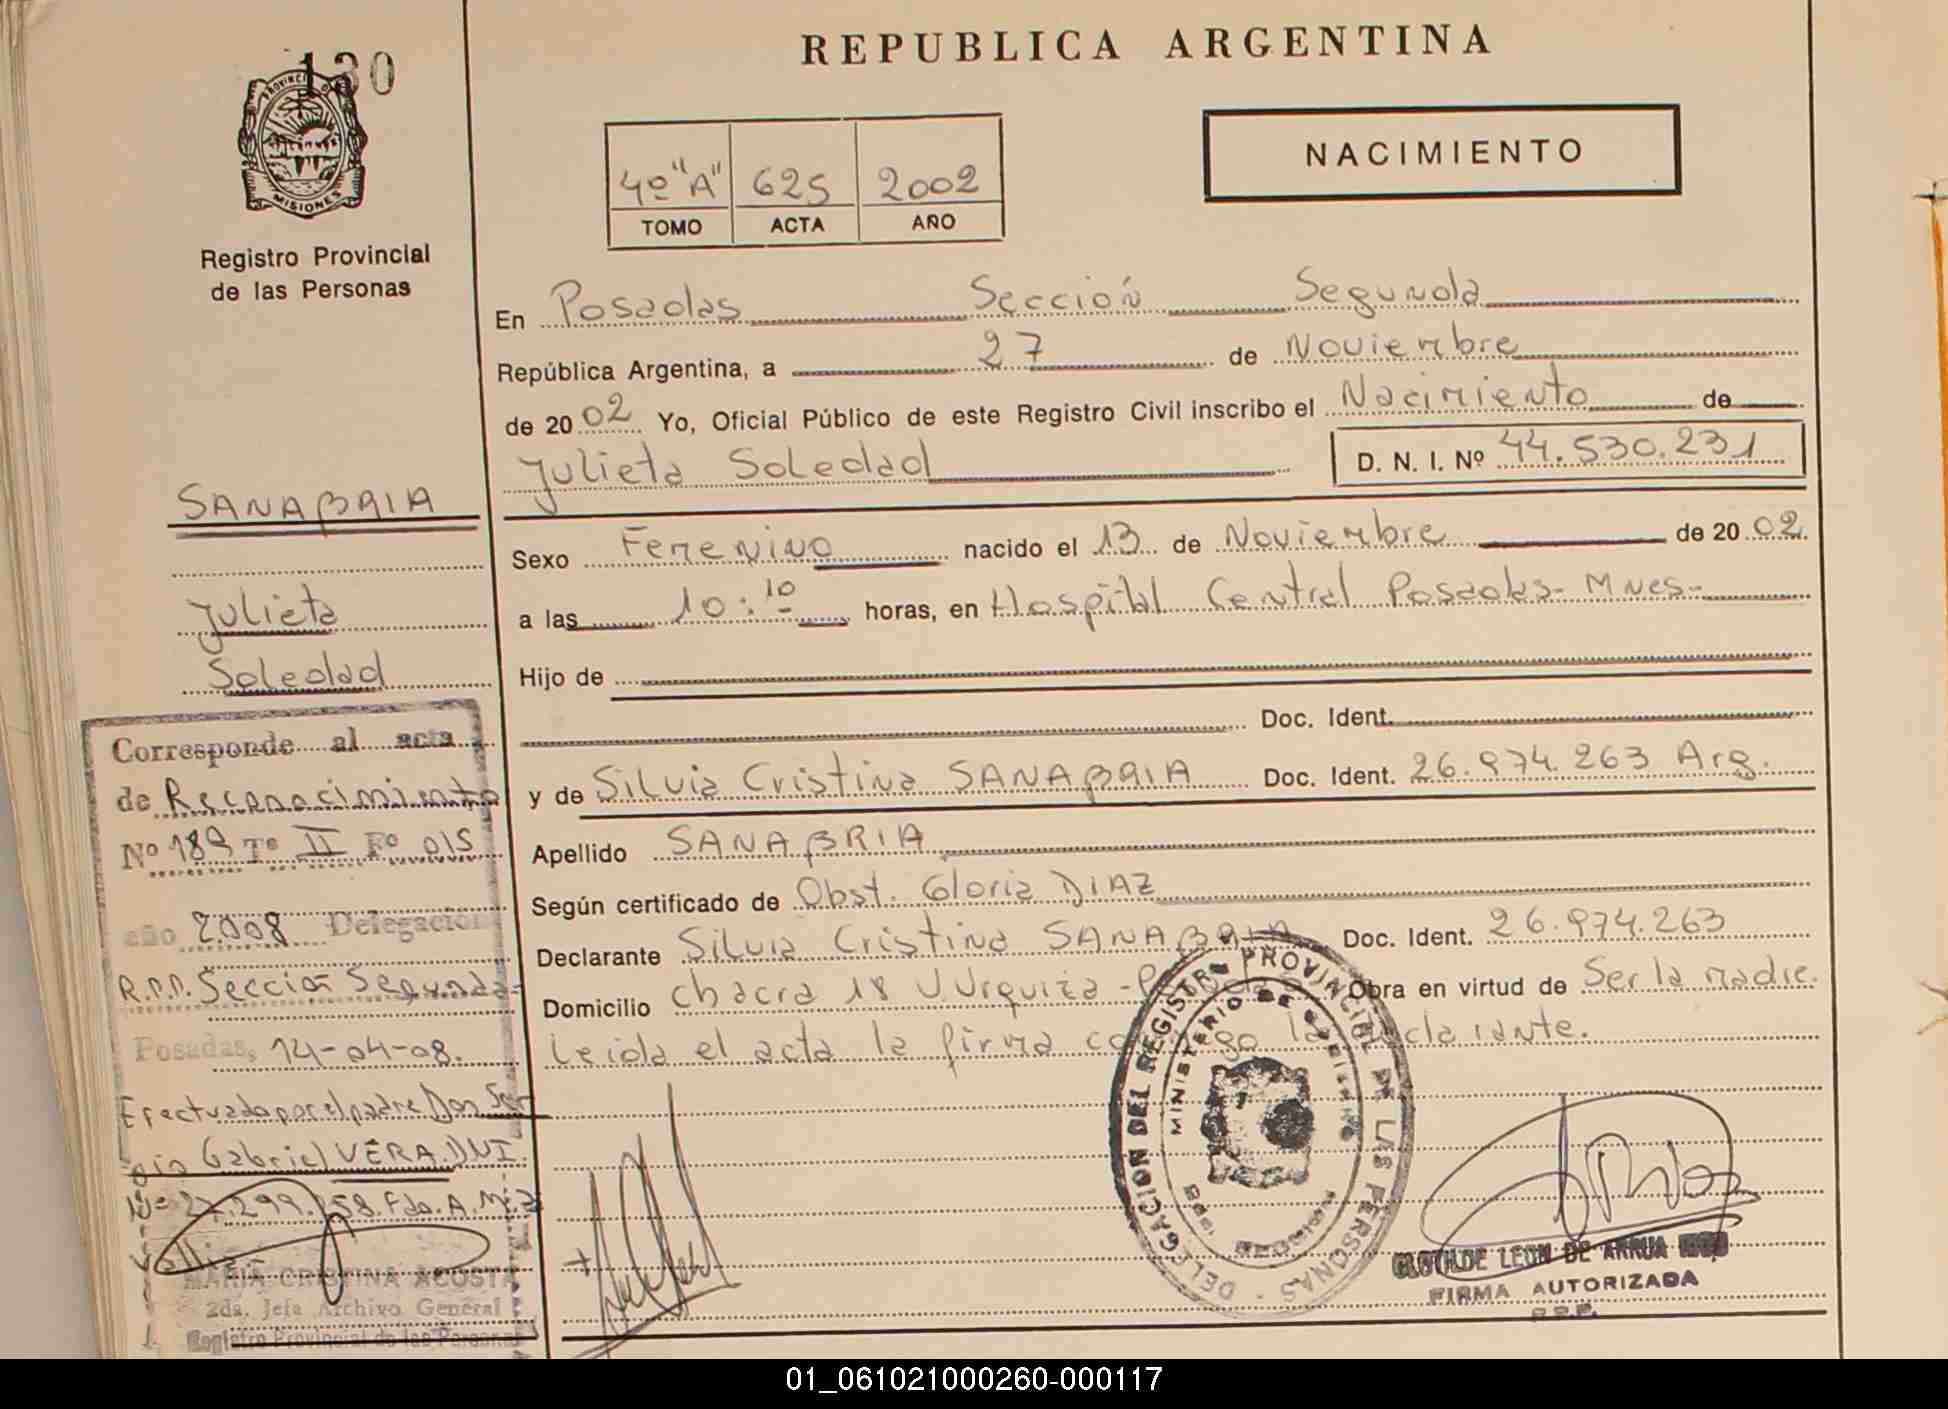 130
PROVINCIA DE
MISIONES
Registro Provincial
de las Personas
SANABRIA
Julieta
Soledad
Corresponde al acta
de Reconocimiento
Nº 189 Tº II Fº 015
año 2008 Delegación
R.P.P. Sección Segunda
Posadas, 14-04-08.
Efectuado por el padre Don Ser
gio Gabriel VERA. DNI.
Nº 27.299.958. Fdo. A. M.
MARIA CRISTINA ACOSTA
2da. Jefa Archivo General
Registro Provincial de las Personas
REPUBLICA ARGENTINA
4º "A" 625 2002
TOMO ACTA AÑO
NACIMIENTO
En Posadas Sección Segunda
República Argentina, a 27 de Noviembre
de 2002 Yo, Oficial Público de este Registro Civil inscribo el Nacimiento de
Julieta Soledad D. N. I. Nº 44.530.231
Sexo Femenino nacido el 13 de Noviembre de 2002.
a las 10:10 horas, en Hospital Central Posadas- Mnes-
Hijo de
Doc. Ident.
y de Silvia Cristina SANABRIA Doc. Ident. 26.974.263 Arg.
Apellido SANABRIA
Según certificado de Obst. Gloria DIAZ
Declarante Silvia Cristina SANABRIA Doc. Ident. 26.974.263
Domicilio Chacra 18 V Urquiza - Obra en virtud de Ser la madre.
Leida el acta la firma conmigo la declarante.
DELEGACION DEL REGISTRO PROVINCIAL DE LAS PERSONAS
MINISTERIO DE GOBIERNO
CLOTILDE LEON DE ARRUA
FIRMA AUTORIZADA
R.P.P.
01_061021000260-000117